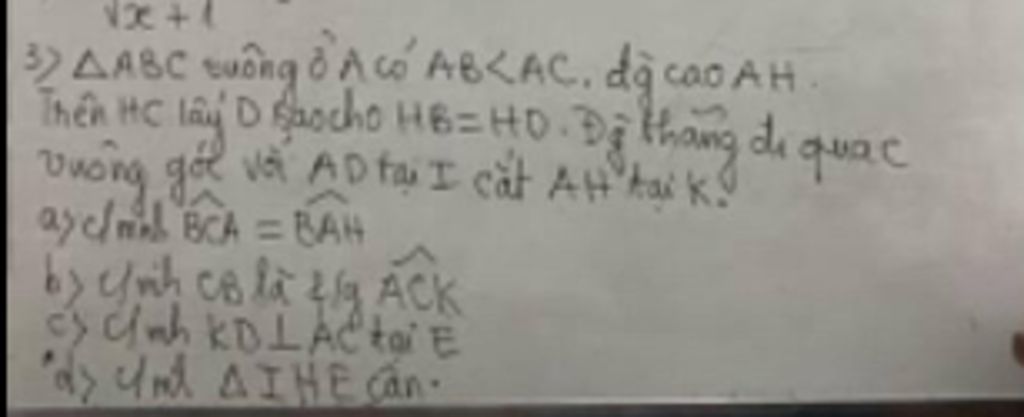 √x + 1
3> △ABC vuông ở A có AB<AC. đg cao AH.
Trên HC lấy D sao cho HB=HD. Đg thẳng đi qua C
vuông góc với AD tại I cắt AH tại K.
a> c/minh B̂CA = B̂AH
b> c/mh CB là t/g ÂCK
c> c/mh KD⊥AC tại E
d> c/mh △IHE cân.